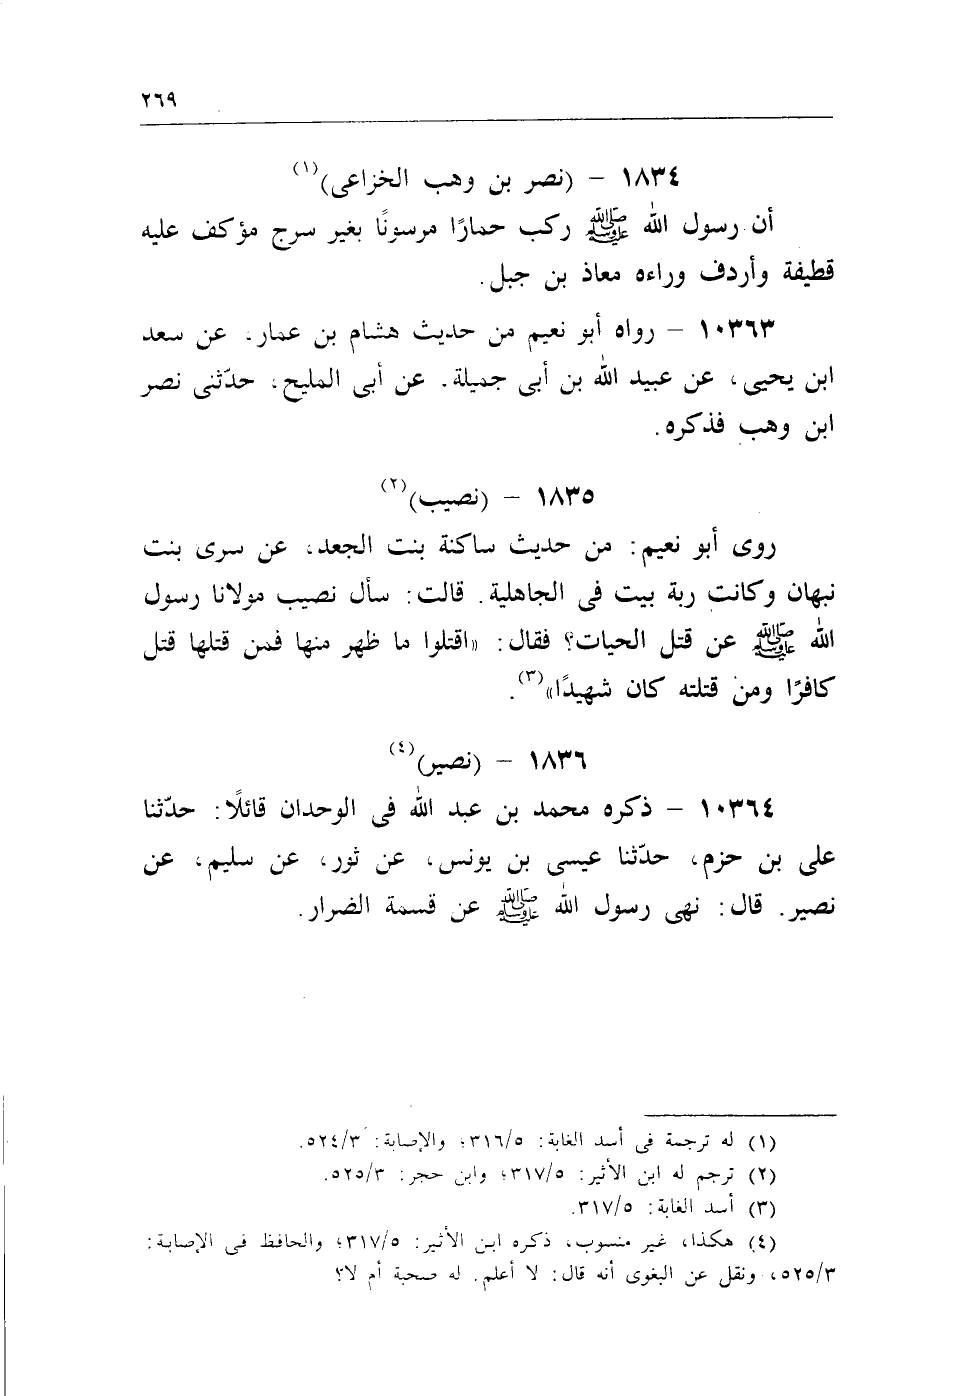 ٢٦٩
١٨٣٤ – (نصر بن وهب الخزاعى)(١)
أن رسول الله ﷺ ركب حمارًا مرسونًا بغير سرج مؤكف عليه
قطيفة وأردف وراءه معاذ بن جبل.
١٠٣٦٣ – رواه أبو نعيم من حديث هشام بن عمار، عن سعد
ابن يحيى، عن عبيد الله بن أبى جميلة. عن أبى المليح، حدّثنى نصر
ابن وهب فذكره.
١٨٣٥ – (نصيب)(٢)
روى أبو نعيم: من حديث ساكنة بنت الجعد، عن سرى بنت
نبهان وكانت ربة بيت فى الجاهلية. قالت: سأل نصيب مولانا رسول
الله ﷺ عن قتل الحيات؟ فقال: «اقتلوا ما ظهر منها فمن قتلها قتل
كافرًا ومن قتلته كان شهيدًا»(٣).
١٨٣٦ – (نصير)(٤)
١٠٣٦٤ – ذكره محمد بن عبد الله فى الوحدان قائلًا: حدّثنا
على بن حزم، حدّثنا عيسى بن يونس، عن ثور، عن سليم، عن
نصير. قال: نهى رسول الله ﷺ عن قسمة الضرار.
(١) له ترجمة فى أسد الغابة: ٣١٦/٥؛ والإصابة: ٥٢٤/٣.
(٢) ترجم له ابن الأثير: ٣١٧/٥؛ وابن حجر: ٥٢٥/٣.
(٣) أسد الغابة: ٣١٧/٥.
(٤) هكذا، غير منسوب، ذكره ابن الأثير: ٣١٧/٥؛ والحافظ فى الإصابة:
٥٢٥/٣، ونقل عن البغوى أنه قال: لا أعلم. له صحبة أم لا؟